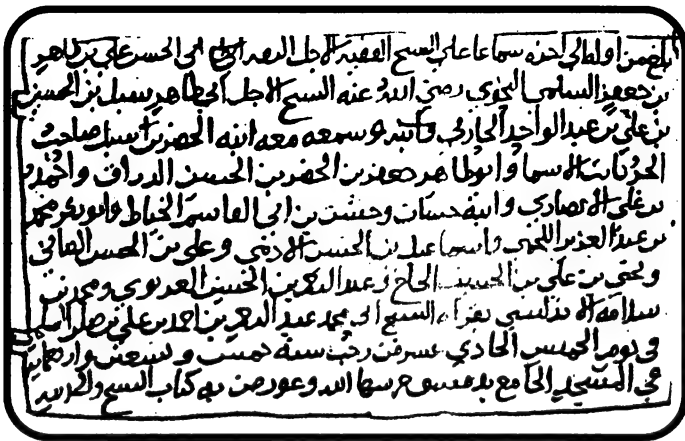 بلغ من اوله الى اخره سماعا على الشيخ الفقيه الاجل ابي الحسن علي بن طاهر
بن جعفر السلمي النحوي رضي الله عنه الشيخ الاجل ابي طاهر سبل بن الحسين
بن علي بن عبد الواحد الحارثي وسمعه معه ابنه الخضر بن سبل صاحب
وابو طاهر جعفر بن الخضر بن الحسين واحمد
بن علي الانصاري وابنه حسان بن ابي القاسم الخياط وابو بكر محمد
بن عبد العزيز اللخمي واسماعيل بن الحسن الادمي وعلي بن الحسن
ويحيى بن علي بن الحسين الحاج وعبد الله بن الحسين العدوي ومحمد بن
سلامة الاندلسي بقراءة الشيخ ابي محمد عبد الله بن احمد بن علي بن صابر السلمي
في يوم الخميس الحادي عشر من رجب سنة خمس وتسعين واربعمائة
في المسجد الجامع بدمشق حرسها الله وعورض به كتاب الشيخ والحمد لله